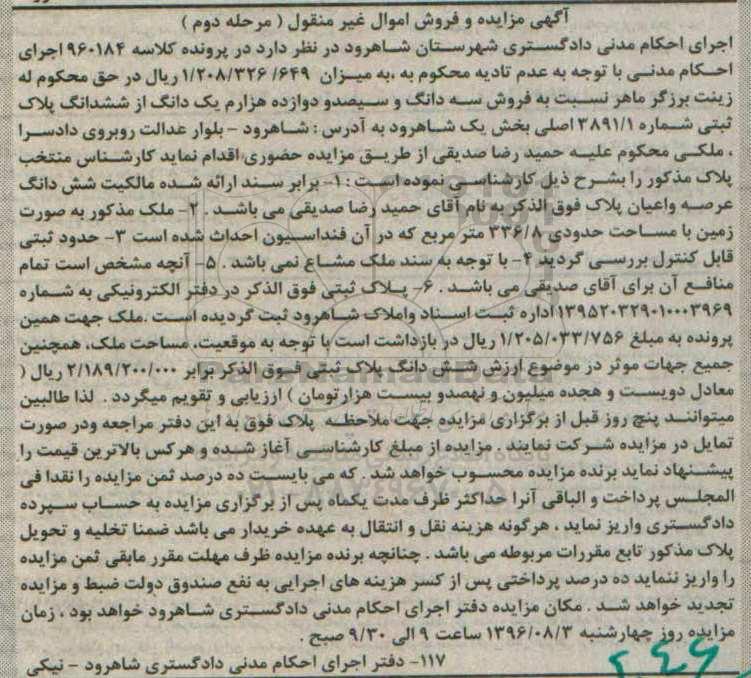 آگهی مزایده و فروش اموال غیر منقول ( مرحله دوم )
اجرای احکام مدنی دادگستری شهرستان شاهرود در نظر دارد در پرونده کلاسه ۹۶۰۱۸۴ اجرای
احکام مدنی با توجه به عدم تادیه محکوم به ،به میزان ۱/۲۰۸/۳۲۶/۶۴۹ ریال در حق محکوم له
زینت برزگر ماهر نسبت به فروش سه دانگ و سیصدو دوازده هزارم یک دانگ از ششدانگ پلاک
ثبتی شماره ۳۸۹۱/۱ اصلی بخش یک شاهرود به آدرس : شاهرود - بلوار عدالت روبروی دادسرا
، ملکی محکوم علیه حمید رضا صدیقی از طریق مزایده حضوری اقدام نماید کارشناس منتخب
پلاک مذکور را بشرح ذیل کارشناسی نموده است : ۱- برابر سند ارائه شده مالکیت شش دانگ
عرصه واعیان پلاک فوق الذکر به نام آقای حمید رضا صدیقی می باشد . ۲- ملک مذکور به صورت
زمین با مساحت حدودی ۳۳۶/۸ متر مربع که در آن فنداسیون احداث شده است ۳- حدود ثبتی
قابل کنترل بررسی گردید ۴- با توجه به سند ملک مشاع نمی باشد . ۵- آنچه مشخص است تمام
منافع آن برای آقای صدیقی می باشد . ۶- پلاک ثبتی فوق الذکر در دفتر الکترونیکی به شماره
۱۳۹۵۲۰۳۲۹۰۱۰۰۰۳۹۶۹ اداره ثبت اسناد واملاک شاهرود ثبت گردیده است .ملک جهت همین
پرونده به مبلغ ۱/۲۰۵/۰۳۳/۷۵۶ ریال در بازداشت است با توجه به موقعیت، مساحت ملک، همچنین
جمیع جهات موثر در موضوع ارزش شش دانگ پلاک ثبتی فوق الذکر برابر ۲/۱۸۹/۲۰۰/۰۰۰ ریال (
معادل دویست و هجده میلیون و نهصدو بیست هزار تومان ) ارزیابی و تقویم میگردد . لذا طالبین
میتوانند پنج روز قبل از برگزاری مزایده جهت ملاحظه پلاک فوق به این دفتر مراجعه ودر صورت
تمایل در مزایده شرکت نمایند . مزایده از مبلغ کارشناسی آغاز شده و هرکس بالاترین قیمت را
پیشنهاد نماید برنده مزایده محسوب خواهد شد . که می بایست ده درصد ثمن مزایده را نقدا فی
المجلس پرداخت و الباقی آنرا حداکثر ظرف مدت یکماه پس از برگزاری مزایده به حساب سپرده
دادگستری واریز نماید ، هرگونه هزینه نقل و انتقال به عهده خریدار می باشد ضمنا تخلیه و تحویل
پلاک مذکور تابع مقررات مربوطه می باشد . چنانچه برنده مزایده ظرف مهلت مقرر مابقی ثمن مزایده
را واریز ننماید ده درصد پرداختی پس از کسر هزینه های اجرایی به نفع صندوق دولت ضبط و مزایده
تجدید خواهد شد . مکان مزایده دفتر اجرای احکام مدنی دادگستری شاهرود خواهد بود ، زمان
مزایده روز چهارشنبه ۱۳۹۶/۰۸/۳ ساعت ۹ الی ۹/۳۰ صبح .
۱۱۷- دفتر اجرای احکام مدنی دادگستری شاهرود - نیکی